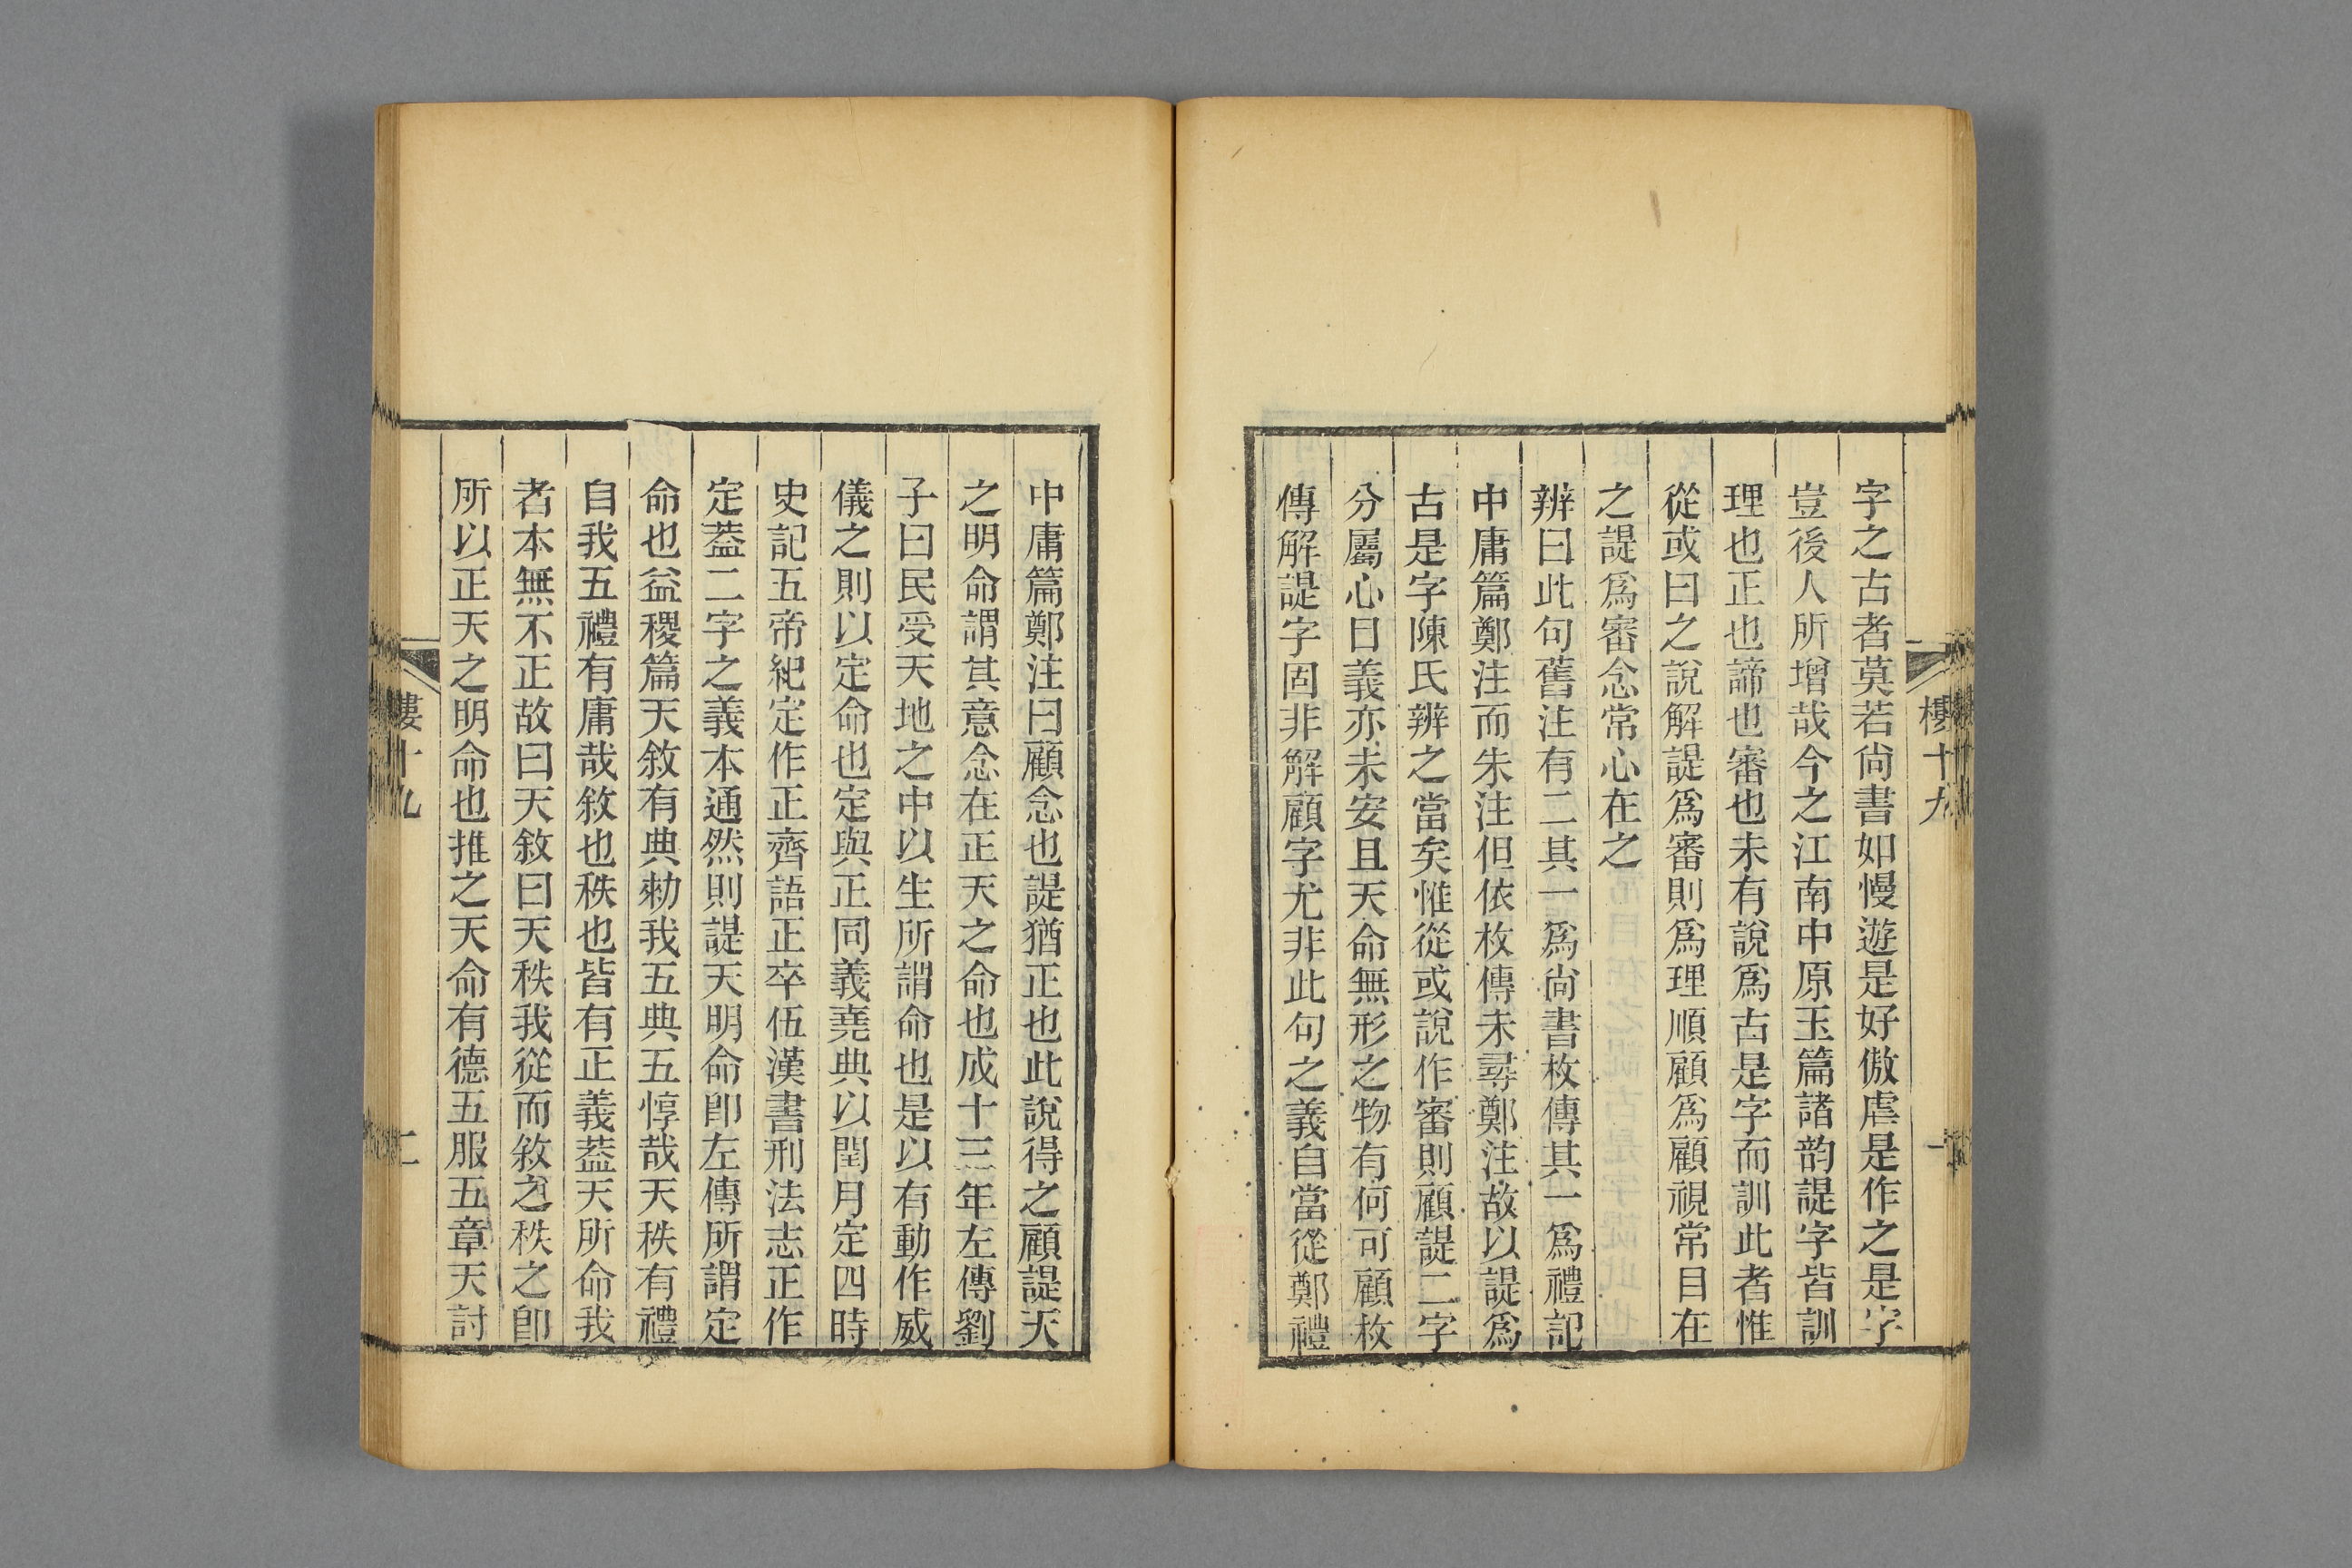 字之古者莫若尙書如慢遊是好傲虐是作之是字
豈後人所增哉今之江南中原玉篇諸韵諟字皆訓
理也正也諦也審也未有說爲古是字而訓此者惟
從或曰之說解諟爲審則爲理順顧爲顧視常目在
之諟爲審念常心在之
辨曰此句舊注有二其一爲尙書枚傳其一爲禮記
中庸篇鄭注而朱注但依枚傳未尋鄭注故以諟爲
古是字陳氏辨之當矣惟從或說作審則顧諟二字
分屬心目義亦未安且天命無形之物有何可顧枚
傳解諟字固非解顧字尤非此句之義自當從鄭禮
樓十九
一
中庸篇鄭注曰顧念也諟猶正也此說得之顧諟天
之明命謂其意念在正天之命也成十三年左傳劉
子曰民受天地之中以生所謂命也是以有動作威
儀之則以定命也定與正同義堯典以閏月定四時
史記五帝紀定作正齊語正卒伍漢書刑法志正作
定蓋二字之義本通然則諟天明命卽左傳所謂定
命也益稷篇天敘有典勅我五典五惇哉天秩有禮
自我五禮有庸哉敘也秩也皆有正義蓋天所命我
者本無不正故曰天敘曰天秩我從而敘之秩之卽
所以正天之明命也推之天命有德五服五章天討
樓十九
二